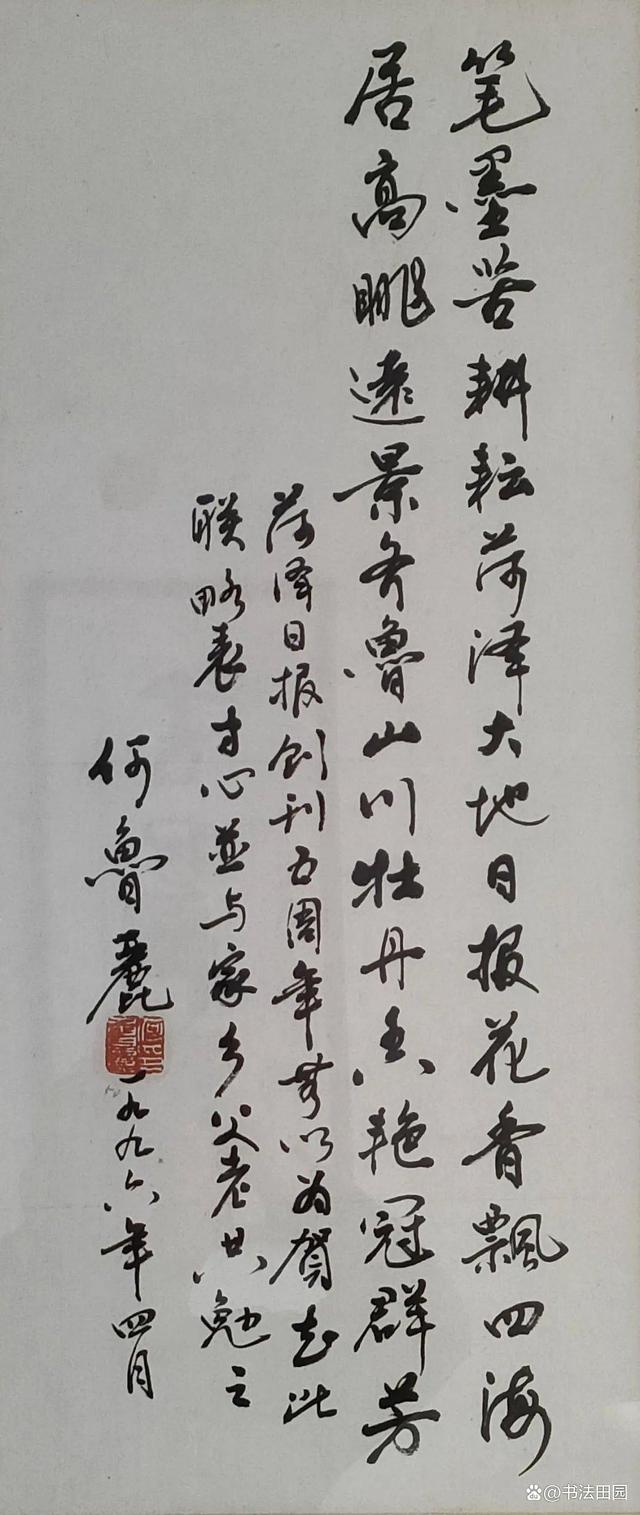 笔墨苦耕耘菏泽大地日报花香飘四海
居高眺远景齐鲁山川牡丹香艳冠群芳
菏泽日报创刊五周年无以为贺书此
联略表寸心並与家乡父老共勉之
何鲁麗
一九九六年四月
@书法田园